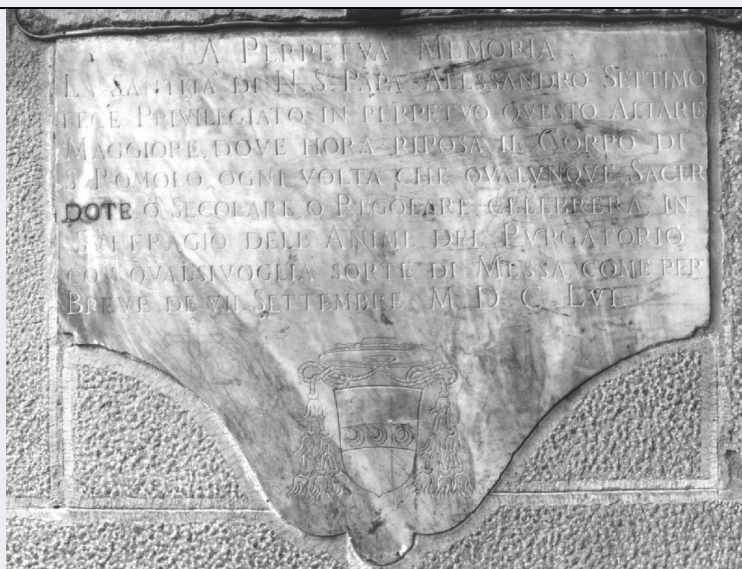 A PERPETVA MEMORIA
LA SANTITA DI N. S. PAPA ALESSANDRO SETTIMO
FECE PRIVILEGIATO IN PERPETVO QVESTO ALTARE
MAGGIORE, DOVE HORA RIPOSA IL CORPO DI
S. ROMOLO OGNI VOLTA CHE QVALVNQVE SACER
DOTE O SECOLARE O REGOLARE CELEBRERÀ IN
SVFFRAGIO DELL ANIME DEL PVRGATORIO
CON QVALSIVOGLIA SORTE DI MESSA COME PER
BREVE DE VII SETTEMBRE M. D. C. LVI.